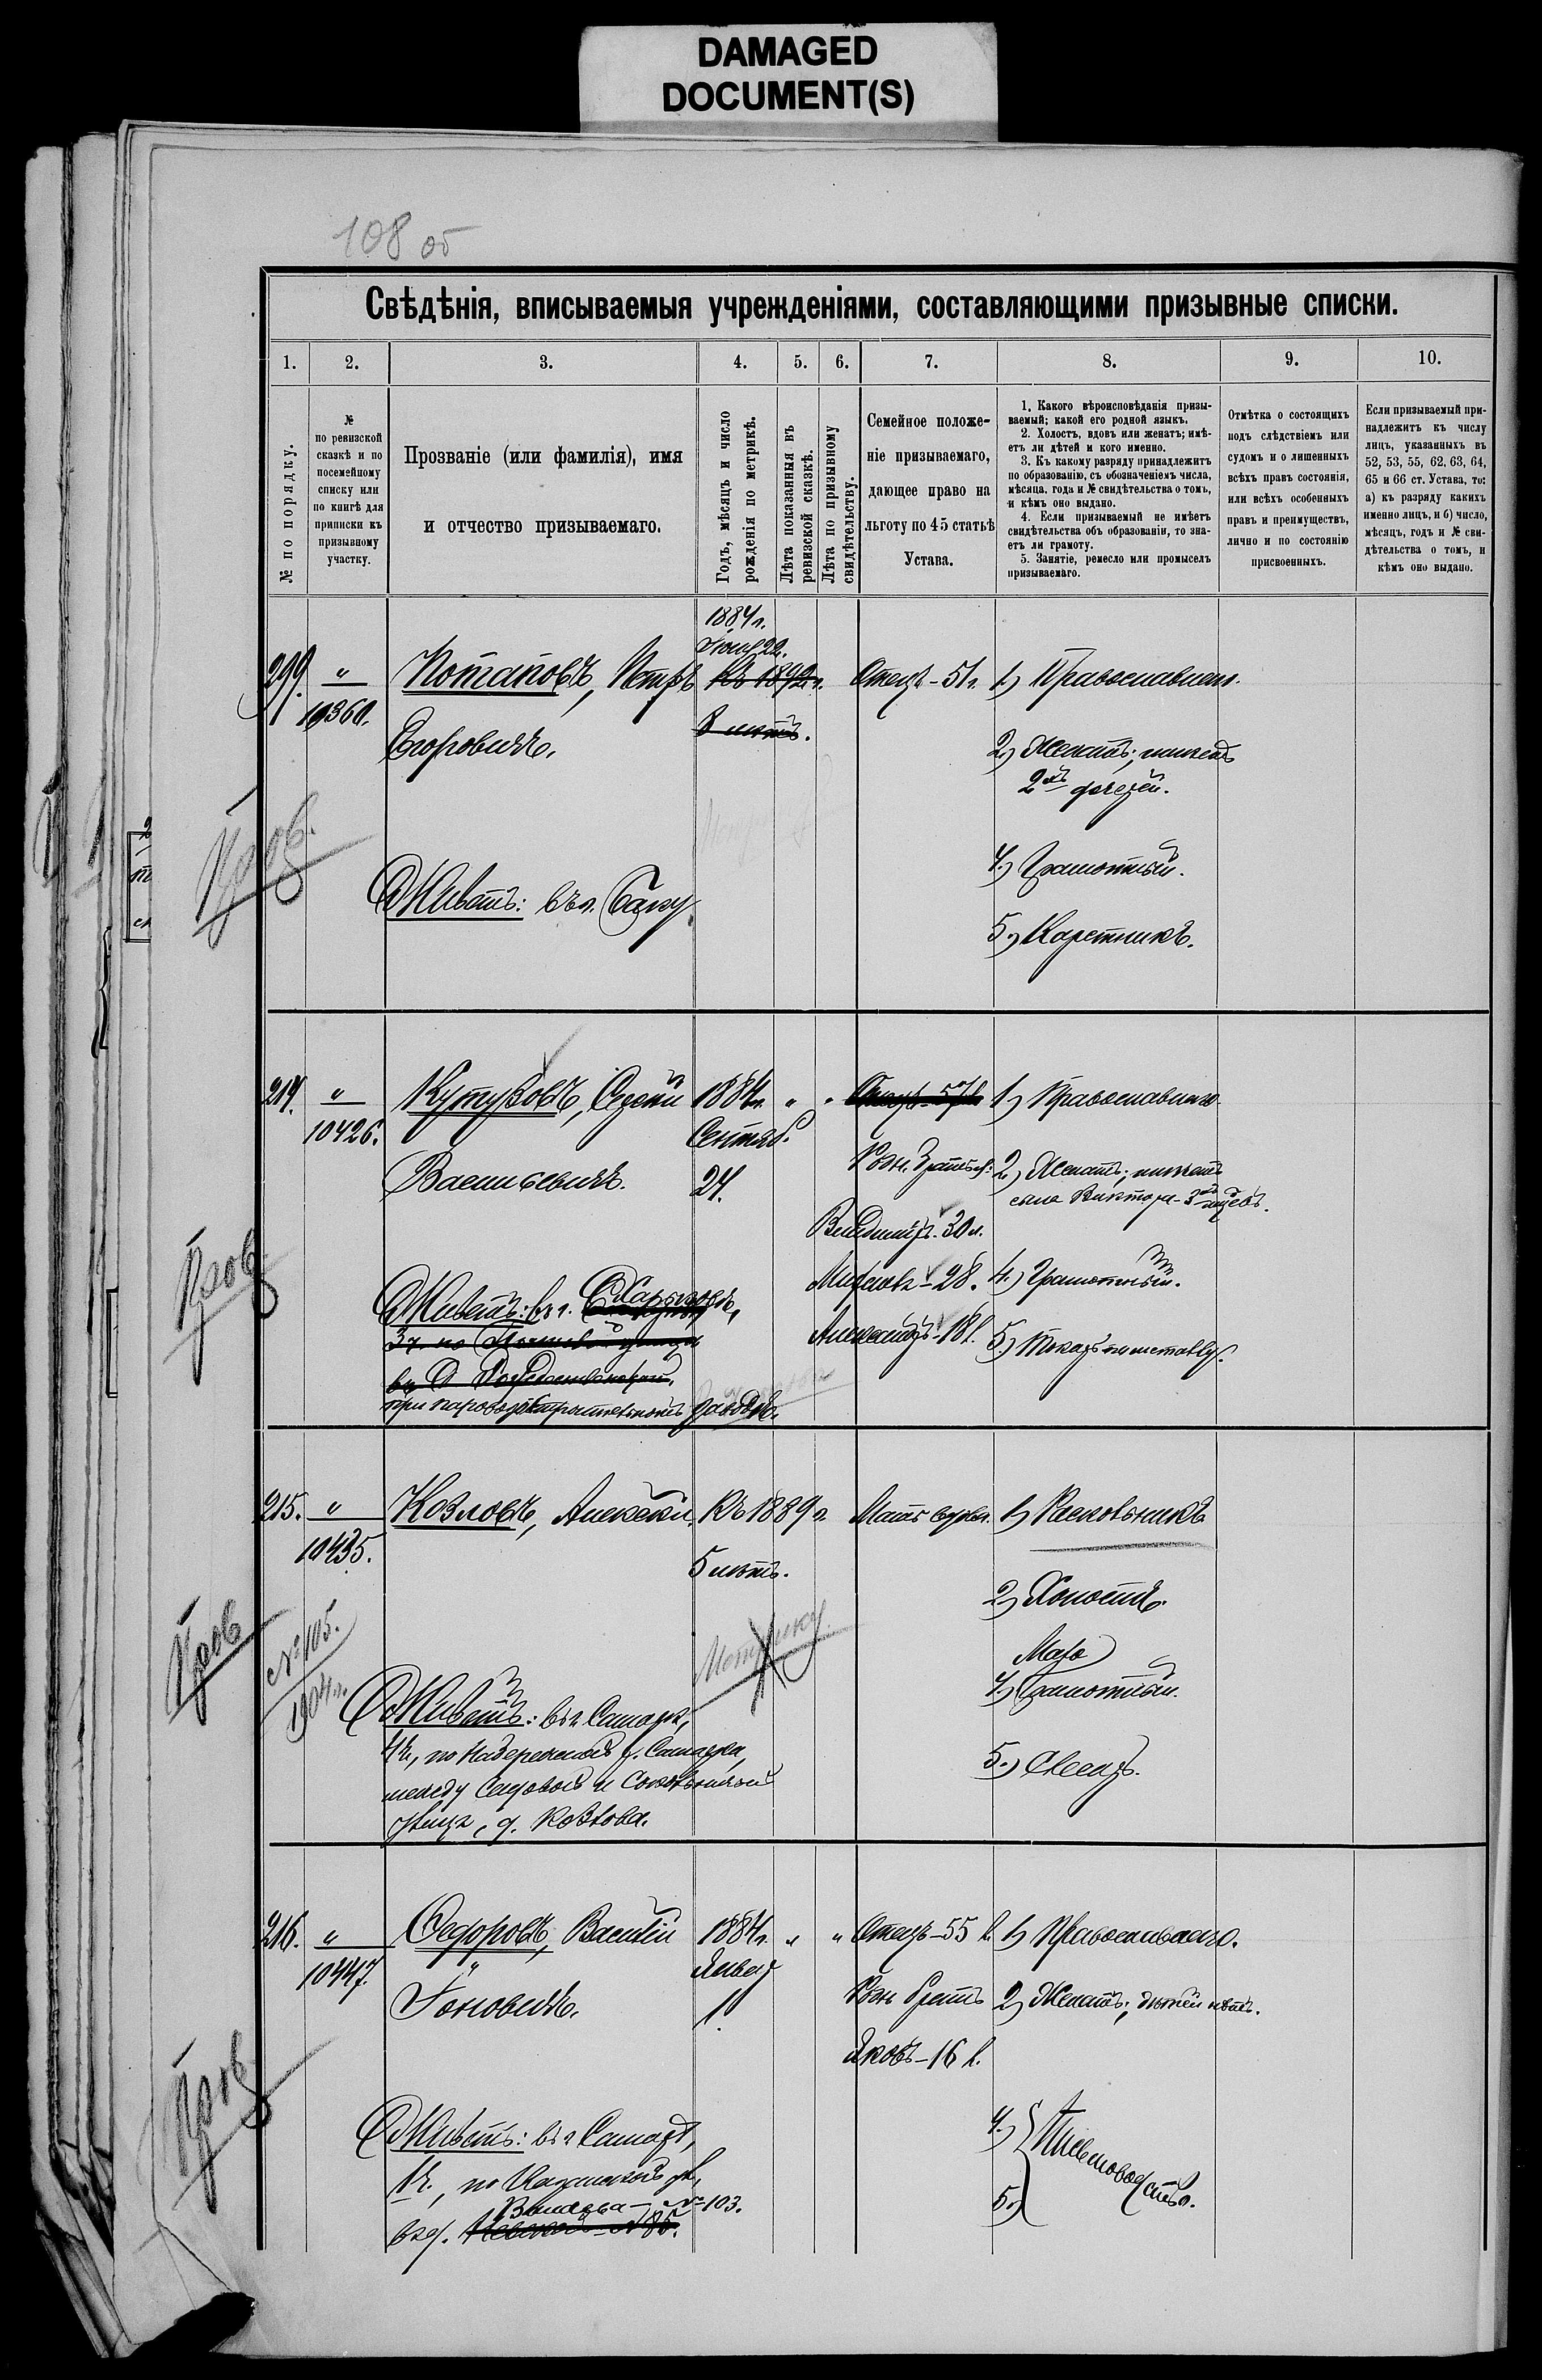 DAMAGED
DOCUMENT(S)
108 об
Свѣдѣнія, вписываемыя учрежденіями, составляющими призывные списки.
1. 2. 3. 4. 5. 6. 7. 8. 9. 10.
№ по порядку.
№
по ревизской
сказкѣ и по
посемейному
списку или
по книгѣ для
приписки къ
призывному
участку.
Прозваніе (или фамилія), имя
и отчество призываемаго.
Годъ, мѣсяцъ и число
рожденія по метрикѣ.
Лѣта показанныя въ
ревизской сказкѣ.
Лѣта по призывному
свидѣтельству.
Семейное положе-
ніе призываемаго,
дающее право на
льготу по 45 статьѣ
Устава.
1. Какого вѣроисповѣданія призы-
ваемый; какой его родной языкъ.
2. Холостъ, вдовъ или женатъ; имѣ-
етъ ли дѣтей и кого именно.
3. Къ какому разряду принадлежитъ
по образованію, съ обозначеніемъ числа,
мѣсяца, года и № свидѣтельства о томъ,
и кѣмъ оно выдано.
4. Если призываемый не имѣетъ
свидѣтельства объ образованіи, то зна-
етъ ли грамоту.
5. Занятіе, ремесло или промыселъ
призываемаго.
Отмѣтка о состоящихъ
подъ слѣдствіемъ или
судомъ и о лишенныхъ
всѣхъ правъ состоянія,
или всѣхъ особенныхъ
правъ и преимуществъ,
лично и по состоянію
присвоенныхъ.
Если призываемый при-
надлежитъ къ числу
лицъ, указанныхъ въ
52, 53, 55, 62, 63, 64,
65 и 66 ст. Устава, то:
а) къ разряду какихъ
именно лицъ, и б) число,
мѣсяцъ, годъ и № сви-
дѣтельства о томъ, и
кѣмъ оно выдано.
1884 г.
299. " Потаповъ, Петръ Къ 1892 г. Отецъ - 51 г. 1) Православнаго.
10360.
Егоровичъ. 8 лѣтъ. 2) Женатъ; имѣетъ
2хъ дочерей.
4) Грамотный.
Живетъ: въ г. Баку.
5.) Каретникъ.
214. " Кутузовъ, 1884 г. " " Отецъ - 57 л. 1) Православнаго
10426. Сентяб.
Васильевичъ. 24. Родн. братья: 2) Женатъ; имѣетъ
сына Виктора - 3 мѣсяц.
30 л.
Михаилъ - 28. 4.) Грамотный.
Живетъ: въ г. Харьковѣ,
Александръ - 18 л. 5) Токарь по металлу.
3 ч. по улицѣ
при паровозостроительномъ заводѣ.
215. " Козловъ, Алексѣй. Къ 1889 г. Мать вдова. 1) Раскольникъ
10435.
5 лѣтъ.
2) Холостъ.
Метрику
№ 105.
1904 г.
Мало
4) Грамотный.
Живетъ: въ г. Самарѣ,
4 ч., по Набережной р. Самары,
5.) Слесарь.
между Садовой и Сокольничьей
улиц, д. Козлова.
216. " Ѳедоровъ, Василій 1884 г. " " Отецъ - 55 л. 1) Православнаго.
10447. Январ
Іоновичъ. 1. Родн. братъ 2) Женатъ; дѣтей нѣтъ.
Яковъ - 16 л.
Живетъ: въ г. Самарѣ, 4.)
1 ч., по Казанской ул., Письмоводств.
№ 103. 5.)
въ д. № 85.